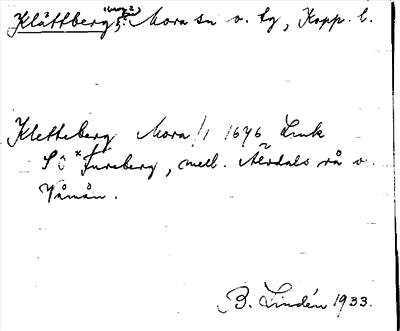 Klättberg, Mora sn o. tg, Kopp. l.
Kletteberg Mora 1/1 1646 Lmk
S o *Fureberg, mell. Älvdals rå o.
Våmån.
B. Lindén 1933.